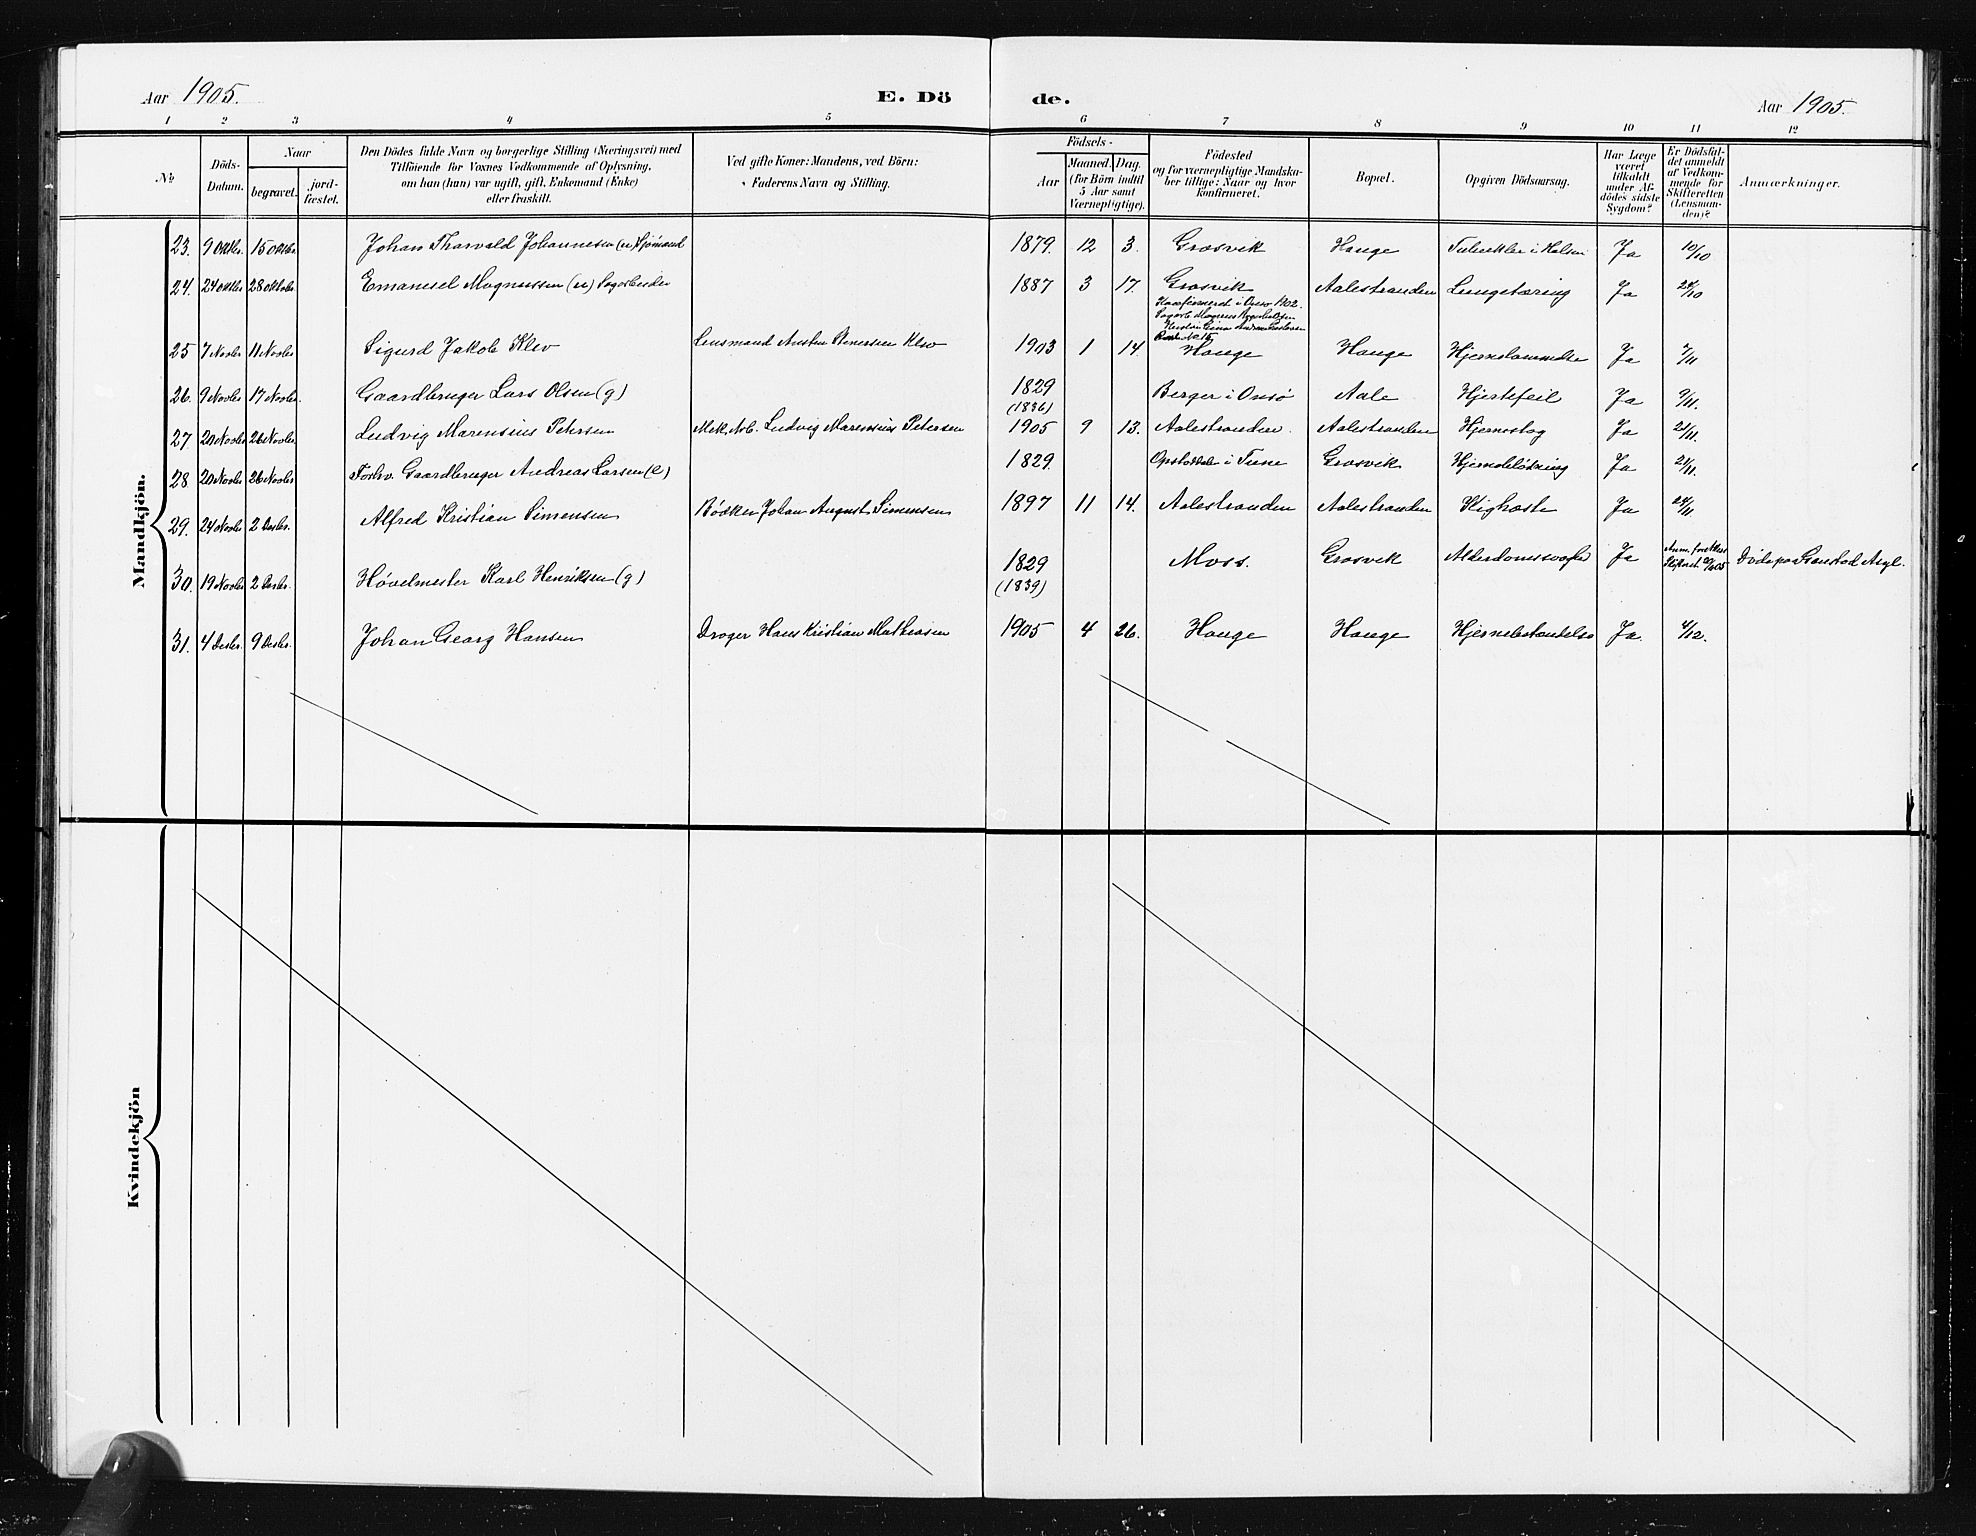 Aar 1905.
E. Dö
de.
Aar 1905.
1 2 3 4 5 6 7 8 9 10 11 12
№
Döds-
Datum.
Naar
begravet.
jord-
fæstet.
Den Dödes fulde Navn og borgerlige Stilling (Næringsvei) med
Tilföiende for Voxnes Vedkommende af Oplysning,
om han (hun) var ugift, gift, Enkemand (Enke)
eller fraskilt.
Ved gifte Koner: Mandens, ved Börn:
Faderens Navn og Stilling.
Födsels-
Aar
Maaned. Dag.
(for Börn indtil
5 Aar samt
Værnepligtige).
Födested
og for værnepligtige Mandska-
ber tillige: Naar og hvor
konfirmeret.
Bopæl.
Opgiven Dödsaarsag.
Har Læge
været
tilkaldt
under Af-
dödes sidste
Sygdom?
Er Dödsfal-
det anmeldt
af Vedkom-
mende for
Skifteretten
(Lensman-
den)?
Anmærkninger.
Mandkjön.
23. 9 Oktbr. 15 Oktbr. Johan Tharvald Johannesen (u) Sjömand 1879. 12 3. Græsvik Hauge Tuberkler i Halsen Ja 10/10
24. 24 Oktbr 28 Oktobr. Emanuel Magnussen (u) Sagarbeider 1887 3 17. Græsvik Aalestranden Lungetæring Ja 24/10
Konfirmeret i Onsø 1902.
25 7 Novbr 11 Novbr Sigurd Jakob Klev Lensmand Klev 1903 1 14. Hauge Hauge Ja 7/11
26. 9 Novbr 17 Novbr. Gaardbruger Lars Olsen (g) 1829 Berger i Onsø Aale Hjertefeil Ja 9/11.
(1836)
27 20 Novbr 26 Novbr. Ludvig Marensius Petersen Mek. Arb. Ludvig Marensius Petersen 1905 9 13. Aalestranden. Aalestranden Hjerneslag Ja 21/11.
28 20 Novbr 26 Novbr Forhv. Gaardbruger Andreas Larsen (e) 1829. i Tune Græsvik Hjerneblødning Ja 21/11.
29. 24 Novbr 2 Desbr. Alfred Kristian Simensen Bødker Johan August Simensen 1897 11 14. Aalestranden Aalestranden Kighoste Ja 24/11.
30. 19 Novbr 2 Desbr. Høvelmester Karl Henriksen (g) 1829 Moss. Græsvik Alderdomssvaghed Ja Død paa Gaustad Asyl.
(1839)
31. 4 Desbr. 9 Desbr. Johan Georg Hansen Drager Hans Kristian Mathiasen 1905 4 26. Hauge Hauge Hjernebetændelse Ja. 4/12.
Kvindekjön